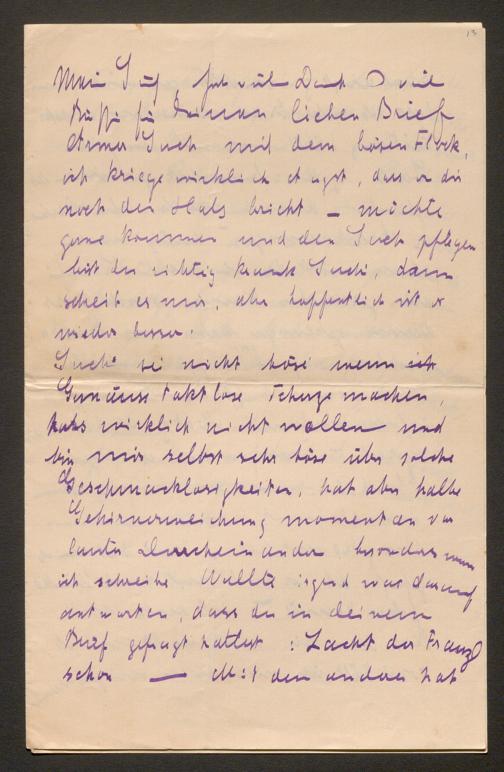 13
Mein Such, hab viel Dank O viel
Bussi für Deinen lieben Brief
Armer Such mit dem bösen Fleck,
ich kriege wirklich Angst, dass er dir
noch den Hals bricht – möchte
gerne kommen und den Such pflegen
bist du richtig krank Suchi, dann
schreib es mir, aber hoffentlich ist er
wieder besser.
Such sei nicht böse wenn ich
taktlose machen,
habs wirklich nicht wollen und
bin mir selbst sehr böse über solche
Geschmacklosigkeiten, hat aber halbe
Gehirnerweichung momentan vor
lauter Durcheinander besonders wenn
ich schreibe Wollte irgend was darauf
antworten, dass du in deinem
Brief gefragt hattest : Lacht der Franzl
schon — Mit den anderen hat